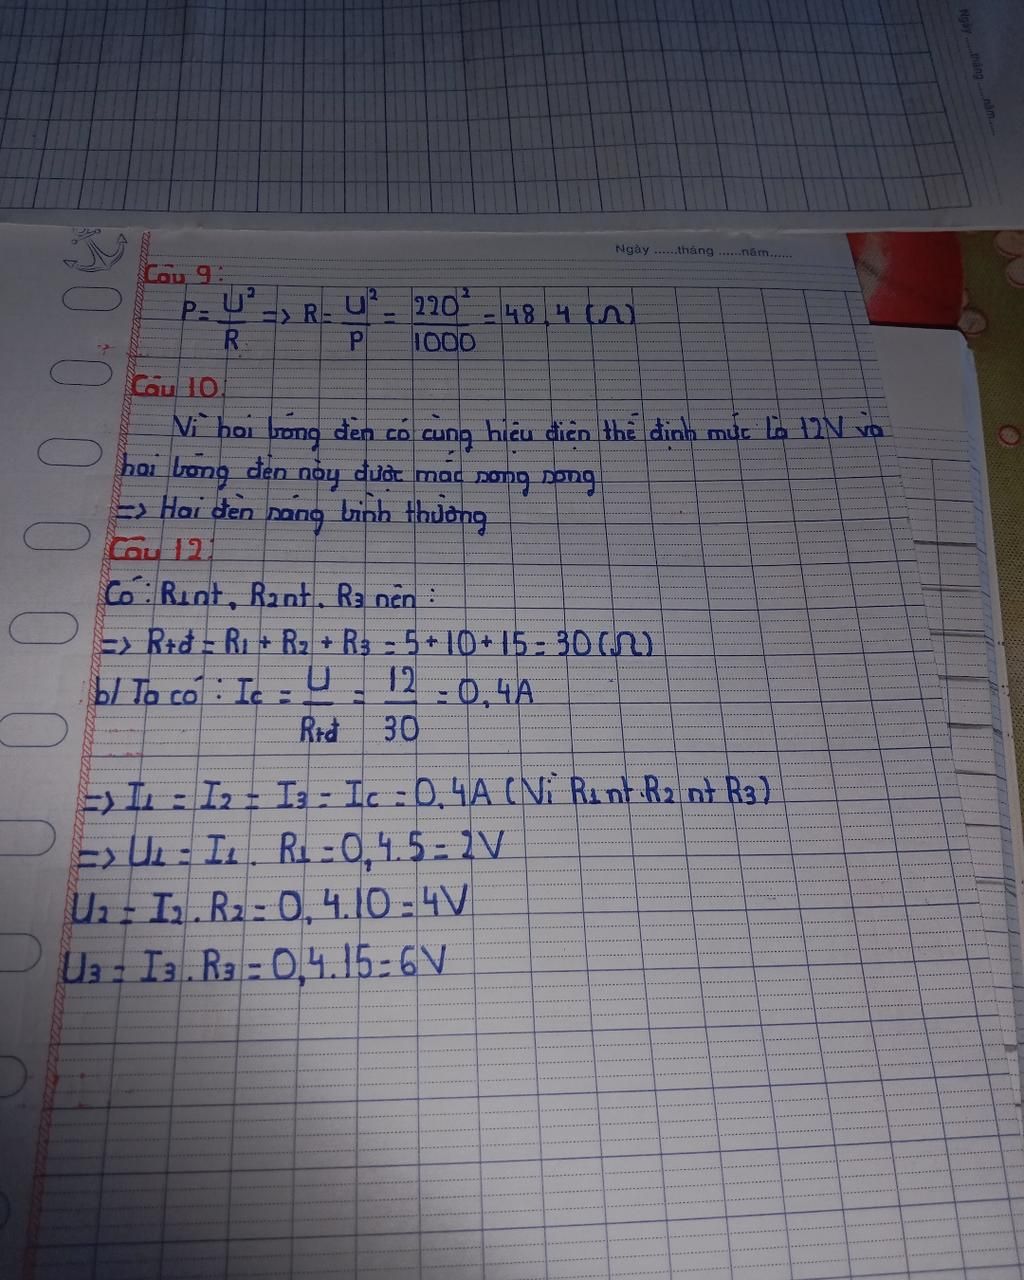 Ngày ......tháng ......năm......
Ngày ......tháng ......năm......
Câu 9:
P = U² / R => R = U² / P = 220² / 1000 = 48,4 (Ω)
Câu 10:
Vì hai bóng đèn có cùng hiệu điện thế định mức là 12V và
hai bóng đèn này được mắc song song
=> Hai đèn sáng bình thường
Câu 12:
Có: R1nt, R2nt, R3 nên:
=> Rtđ = R1 + R2 + R3 = 5 + 10 + 15 = 30 (Ω)
b/ Ta có: Ic = U / Rtđ = 12 / 30 = 0,4A
=> I1 = I2 = I3 = Ic = 0,4A (Vì R1nt.R2 nt R3)
=> U1 = I1. R1 = 0,4.5 = 2V
U2 = I2.R2 = 0,4.10 = 4V
U3 = I3.R3 = 0,4.15 = 6V